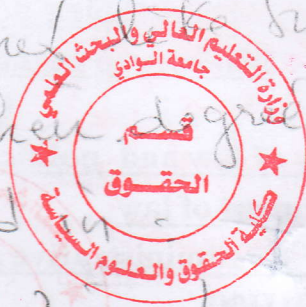 وزارة التعليم العالي والبحث العلمي
جامعة الوادي
قسم
الحقوق
كلية الحقوق والعلوم السياسية
degre